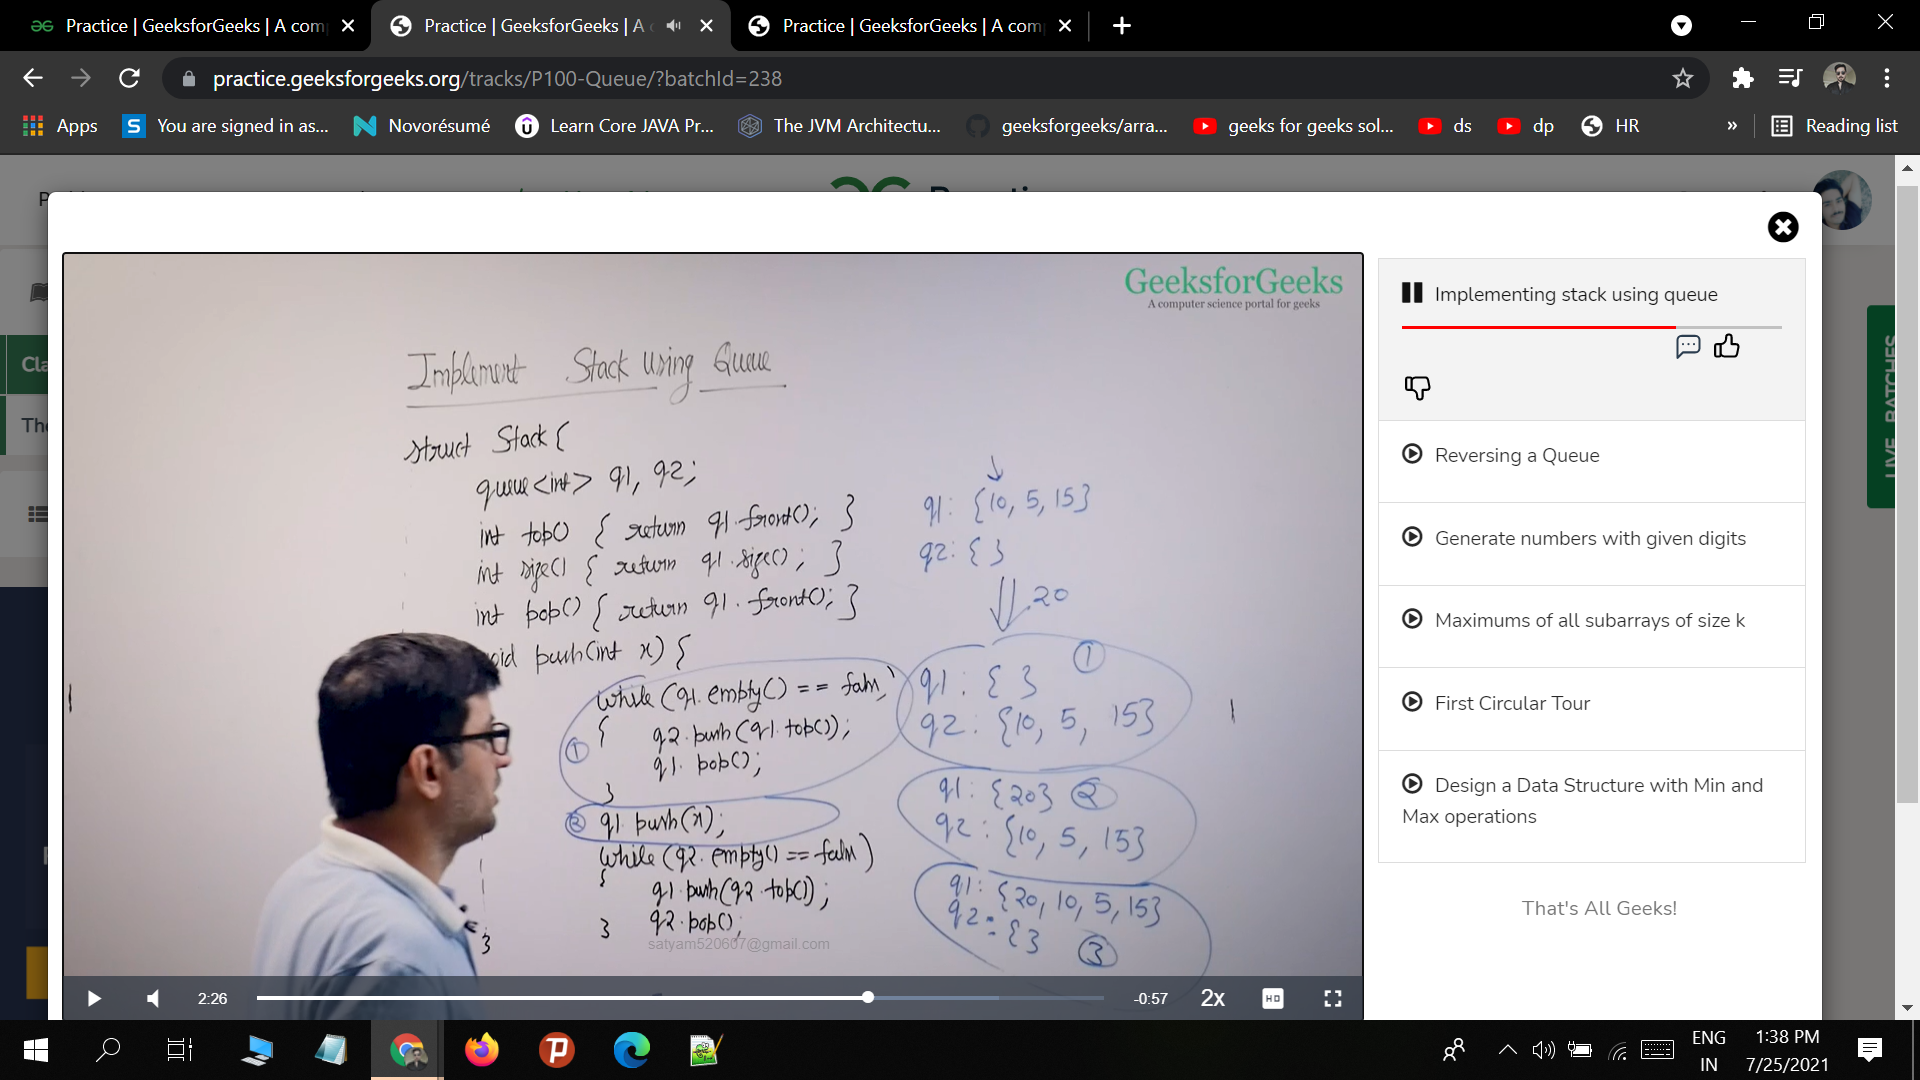 Practice | GeeksforGeeks | A com
Practice | GeeksforGeeks | A c
Practice | GeeksforGeeks | A com
practice.geeksforgeeks.org/tracks/P100-Queue/?batchId=238
Apps
You are signed in as...
Novorésumé
Learn Core JAVA Pr...
The JVM Architectu...
geeksforgeeks/arra...
geeks for geeks sol...
ds
dp
HR
»
Reading list
GeeksforGeeks
A computer science portal for geeks
Implement Stack Using Queue
struct Stack {
queue<int> q1, q2;
int top() { return q1.front(); }
int size() { return q1.size(); }
int pop() { return q1.front(); }
void push(int x) {
while (q1.empty() == false)
{ q2.push(q1.top());
q1.pop();
}
① 
② q1.push(x);
while (q2.empty() == false)
{ q1.push(q2.top());
} q2.pop();
}
q1: {10, 5, 15}
q2: { }
20
①
q1: { }
q2: {10, 5, 15}
q1: {20} ②
q2: {10, 5, 15}
q1: {20, 10, 5, 15}
q2: { } ③
satyam520607@gmail.com
2:26
-0:57
2x
HD
Implementing stack using queue
Reversing a Queue
Generate numbers with given digits
Maximums of all subarrays of size k
First Circular Tour
Design a Data Structure with Min and
Max operations
That's All Geeks!
LIVE BATCHES
Cla
The
ENG
IN
1:38 PM
7/25/2021